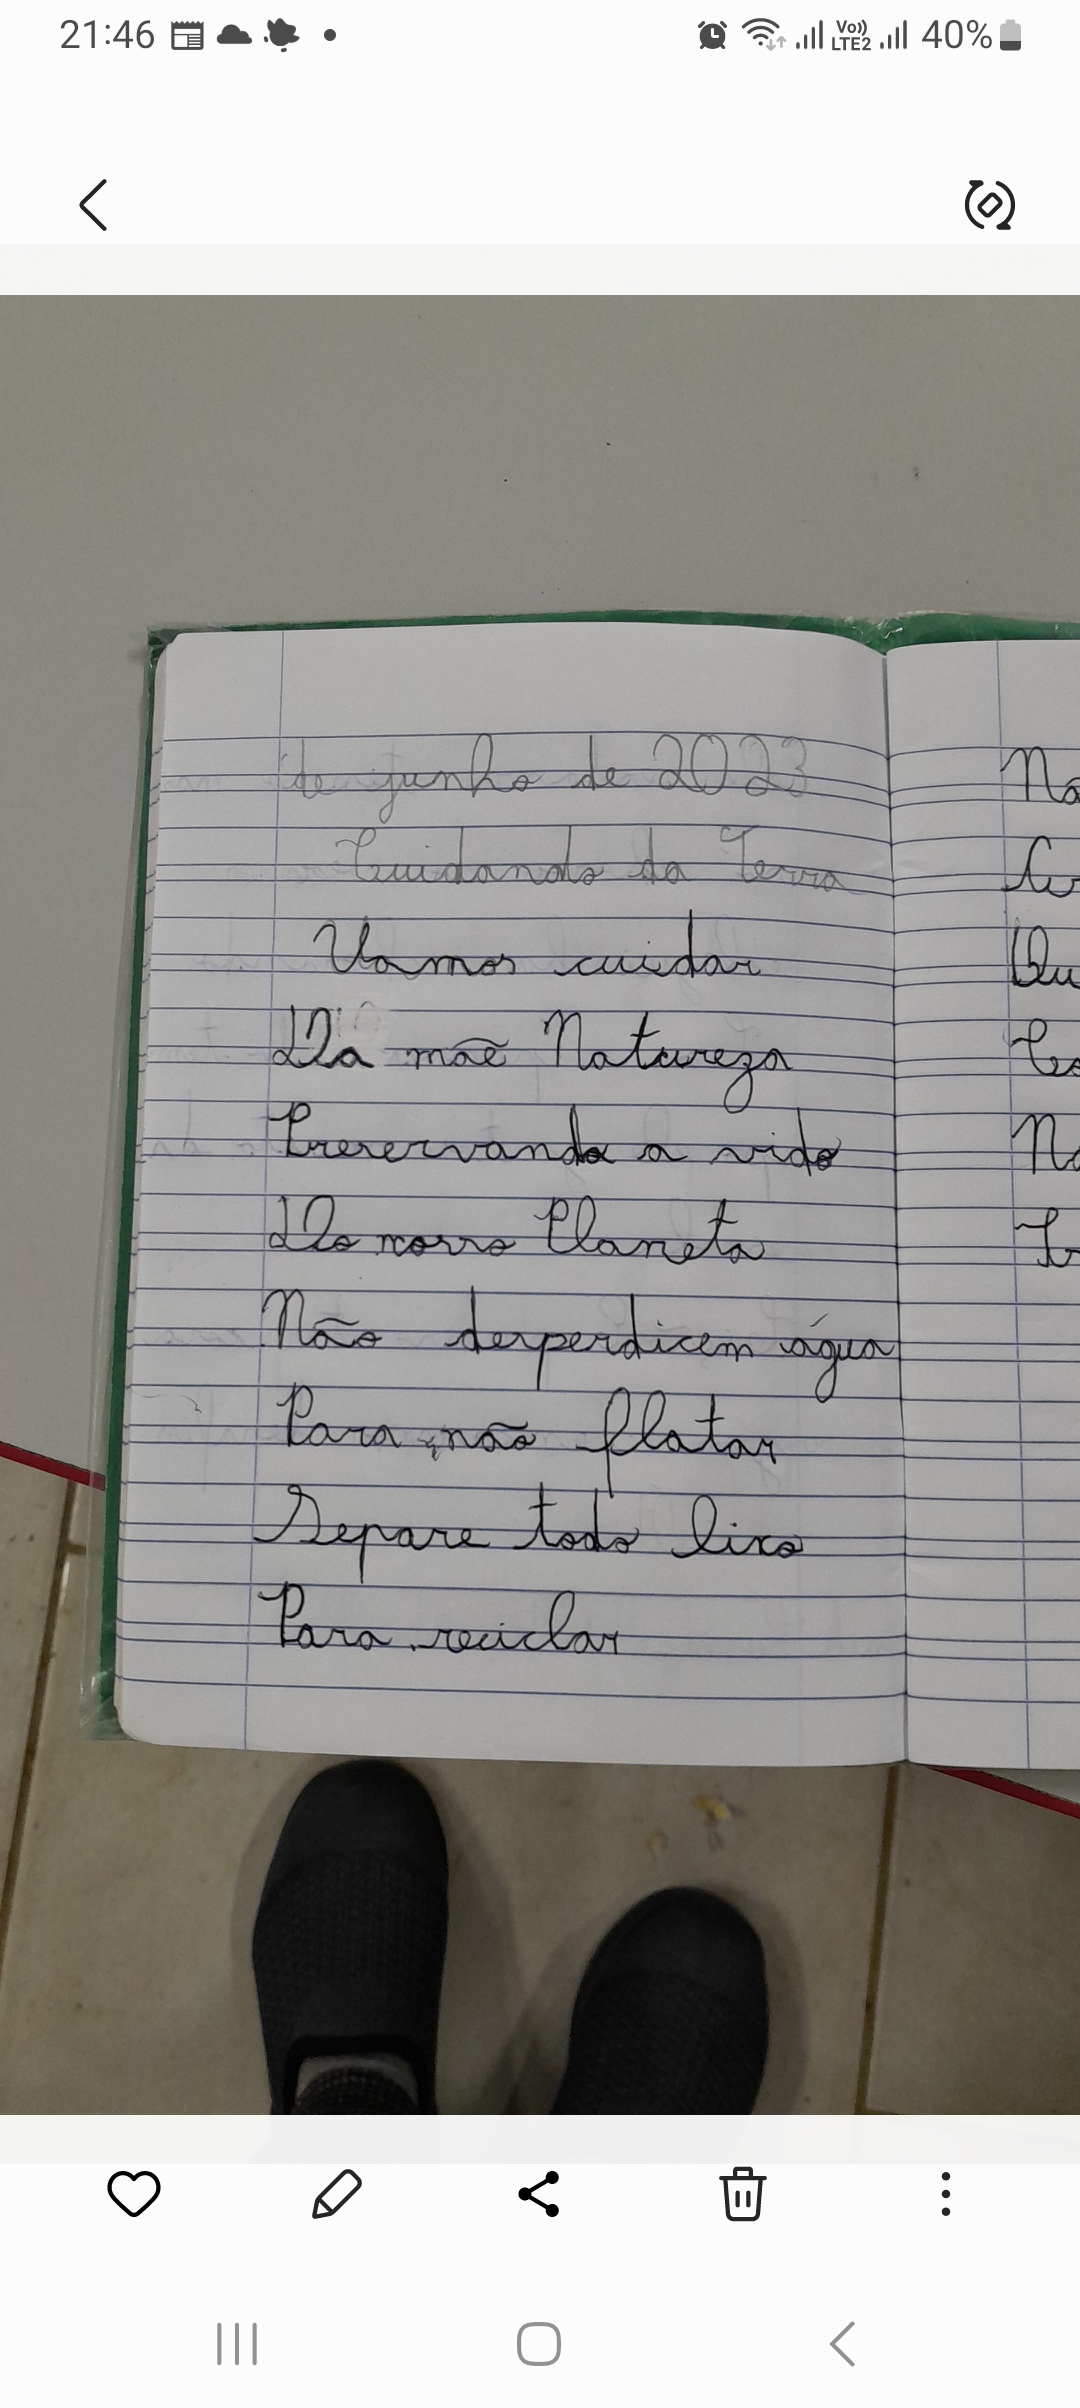 21:46
Vo))
LTE2
40%
de junho de 2023
Cuidando da Terra
Vamos cuidar
Da mãe Natureza
Preservando a vida
Do nosso Planeta
Não desperdicem água
Para não flatar
Separe todo lixo
Para reciclar